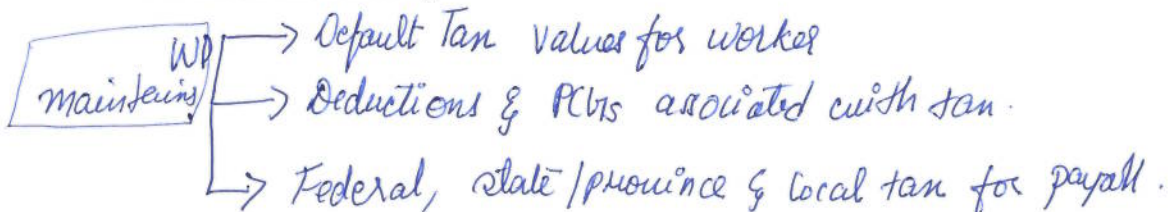 WD maintains
→ Default Tax values for worker
→ Deductions & PCGs associated with tax.
→ Federal, state/province & local tax for payroll.